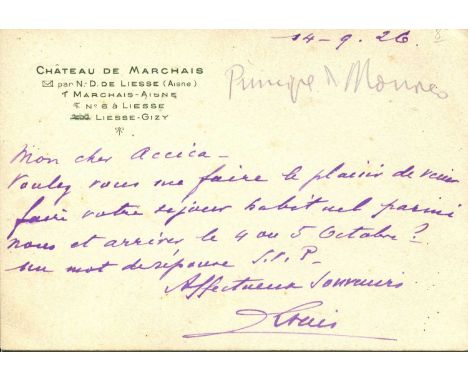 14-9.26
CHÂTEAU DE MARCHAIS
par N.-D. DE LIESSE (AISNE)
MARCHAIS-AISNE
N° 6 À LIESSE
LIESSE-GIZY
Principe Monaco
Mon cher Accica-
Voulez vous me faire le plaisir de venir
faire votre séjour habituel parmi
nous et arriver le 4 ou 5 Octobre?
un mot de réponse S.V.P-
Affectueux Souvenirs
Louis